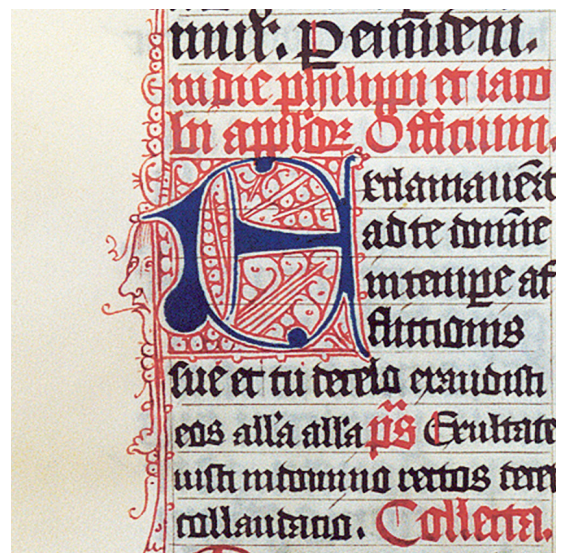 mur. ꝑ eūdem.
In die philippi et iaco
bi apl̄oꝝ Officium.
Exclamauēt
ad te domīe
in tempꝑe af
flictionis
sue et tu de celo exaudisti
eos all'a all'a p̄s Exultate
iusti in domino rectos decet
collaudatio. Collecta.